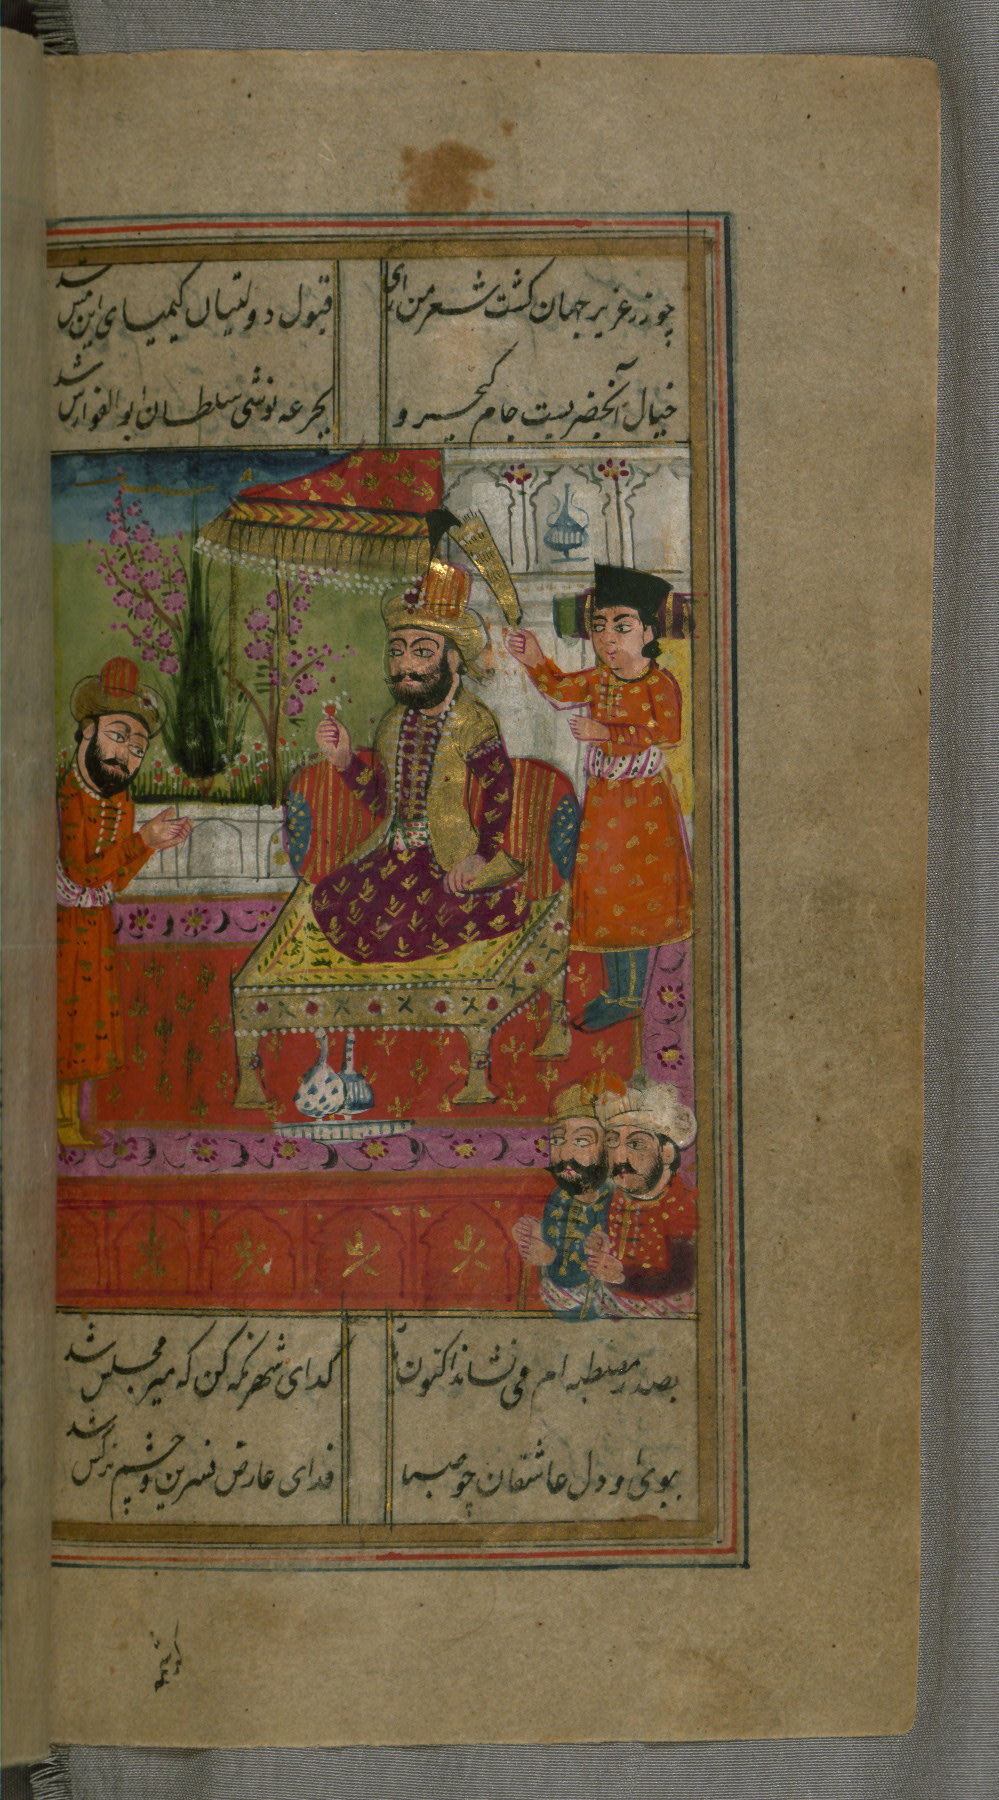 چو زر عزیز جهان کشت شعر من آری
قبول دولتیان کیمیای این مس شد
خیال آبخضر بست جام کیخسرو
بجرعه نوشی سلطان ابوالفوارس شد
بصدر مصطبه ام می نشاند اکنون
کدای شهر نکه کن که میر مجلس شد
ببوی او دل عاشقان چو صبا
فدای عارض نسرین و چشم نرکس شد